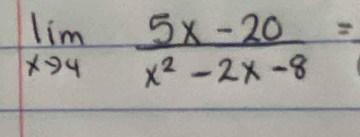 lim x→4 (5x - 20)/(x² - 2x - 8) =